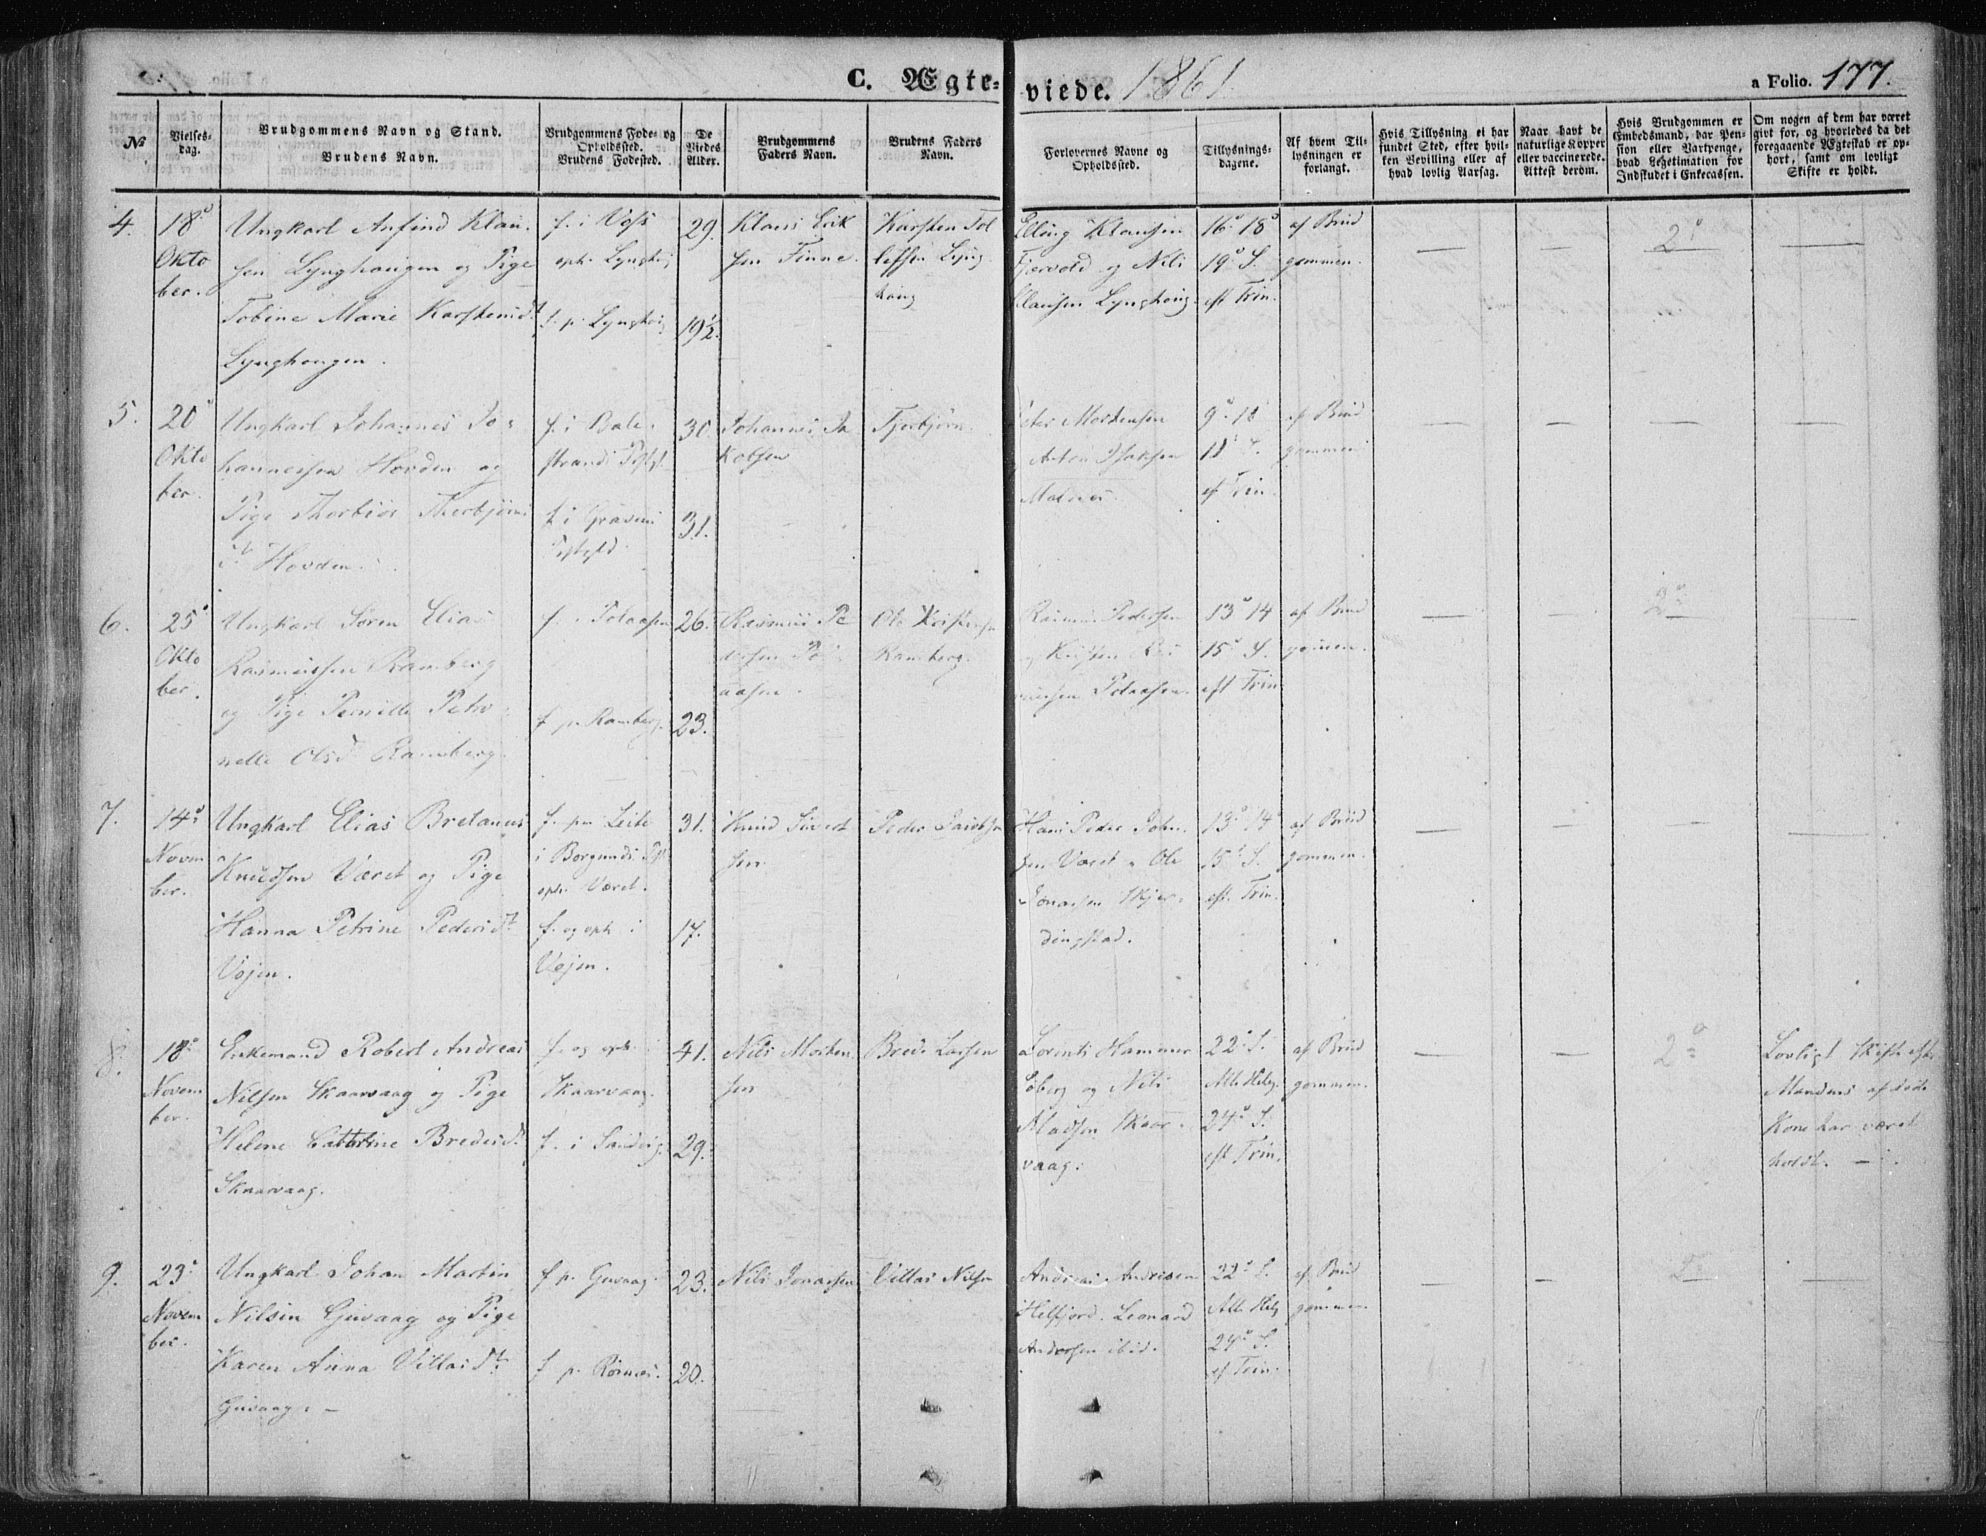 C. Ægte- viede. 1861. a Folio. 177.
№
Vielses-dag.
Brudgommens Navn og Stand.
Brudens Navn.
Brudgommens Føde- og Opholdssted.
Brudens Fødested.
De Viedes Alder.
Brudgommens Faders Navn.
Brudens Faders Navn.
Forlovernes Navne og Opholdssted.
Tillysnings-dagene.
Af hvem Til-lysningen er forlangt.
Hvis Tillysning ei har fundet Sted, efter hvil-ken Bevilling eller af hvad lovlig Aarsag.
Naar havt de naturlige Kopper eller vaccinerede. Attest derom.
Hvis Brudgommen er Embedsmand, har Pen-sion eller Vartpenge, hvad Legetimation for Indskudet i Enkecassen.
Om nogen af dem har været givt for, og hvorledes da det foregaaende Ægteskab er op-hørt, samt om lovligt Skifte er holdt.
4.
18de
Okto
ber.
Ungkarl Anfind Klau-
sen Lynghaugen og Pige
Tobine Marie Karstensdt
Lynghaugen.
f. i Voss
f. p. Lynghoug
29.
19½.
Klaus Erik
sen Finne.
Karsten Tol
lefsen Lyng
houg
Elling Klausen
og Nils
Klausen Lynghoug.
16de 18de
19de S.
eft Trin.
af Brud
gommen.
2de
5.
20de
Okto
ber.
Ungkarl Johannes Jo-
hannessen Hovden og
Pige Thorbjør Therbjørns
dt Hovden.
f. i Bale-
strands
f. i
30.
31.
Johannes Ja
kobsen
Peter Mortensen
og Anton Isaksen
Malnes.
af Brud
gommen
ef Trin.
6.
25de
Okto
ber.
Ungkarl Søren Elias
Rasmussen Ramberg
og Pige Pernille Petro-
nelle Olsdt Ramberg.
f. i Polaasen
f. p. Ramberg.
26.
23.
Rasmus Pe
dersen Pol
aasen.
Ole Kristensen
Ramberg.
Rasmus Pedersen
og Kristen Ras
mussen Polaasen.
13de 14
15de S.
eft Trin.
af Brud
gommen.
2de
7.
14de
Novem
ber.
Ungkarl Elias Bretanus
Knudsen Været og Pige
Hanna Petrine Pedersdt
Vojen.
f. paa Leite
i Borgunds
oph: Været.
f. og oph i
Vojen.
31.
17.
Knud Sivert
sen
Peder Jacobsen
Hans Peder John-
sen Været og Ole
Jonassen Skjer-
dingstad.
13de 14de
15de S.
eft. Trin.
af Brud
gommen.
8.
18de
Novem
ber.
Enkemand Robert Andreas
Nilsen Skaarvaag og Pige
Helene Cathrine Bredesdt
Skaarvaag.
f. og oph. i
Skaarvaag.
f. i Sandvig.
41.
29.
Nils Morten
sen
Brede Larsen
Lorents Hammer
Soberg og Nils
Madsen Skaar-
vaag.
22de S.
Alle Helg.
24de S.
eft Trin.
af Brud
gommen.
2de
Lovligt Skifte efter
Mandens afdøde
Kone har været
holdt. —
9.
23de
Novem
ber.
Ungkarl Johan Martin
Nilsen Guvaag og Pige
Karen Anna Villasdt
Guvaag. —
f. p. Guvaag.
f. p. Rørnes.
23.
20.
Nils Jonassen
Villas Nilsen
Andreas Andersen
Helfjord. Leonard
Andersen ibid.
22de S.
Alle Helg
24de S.
ef Trin.
af Brud
gommen.
2de